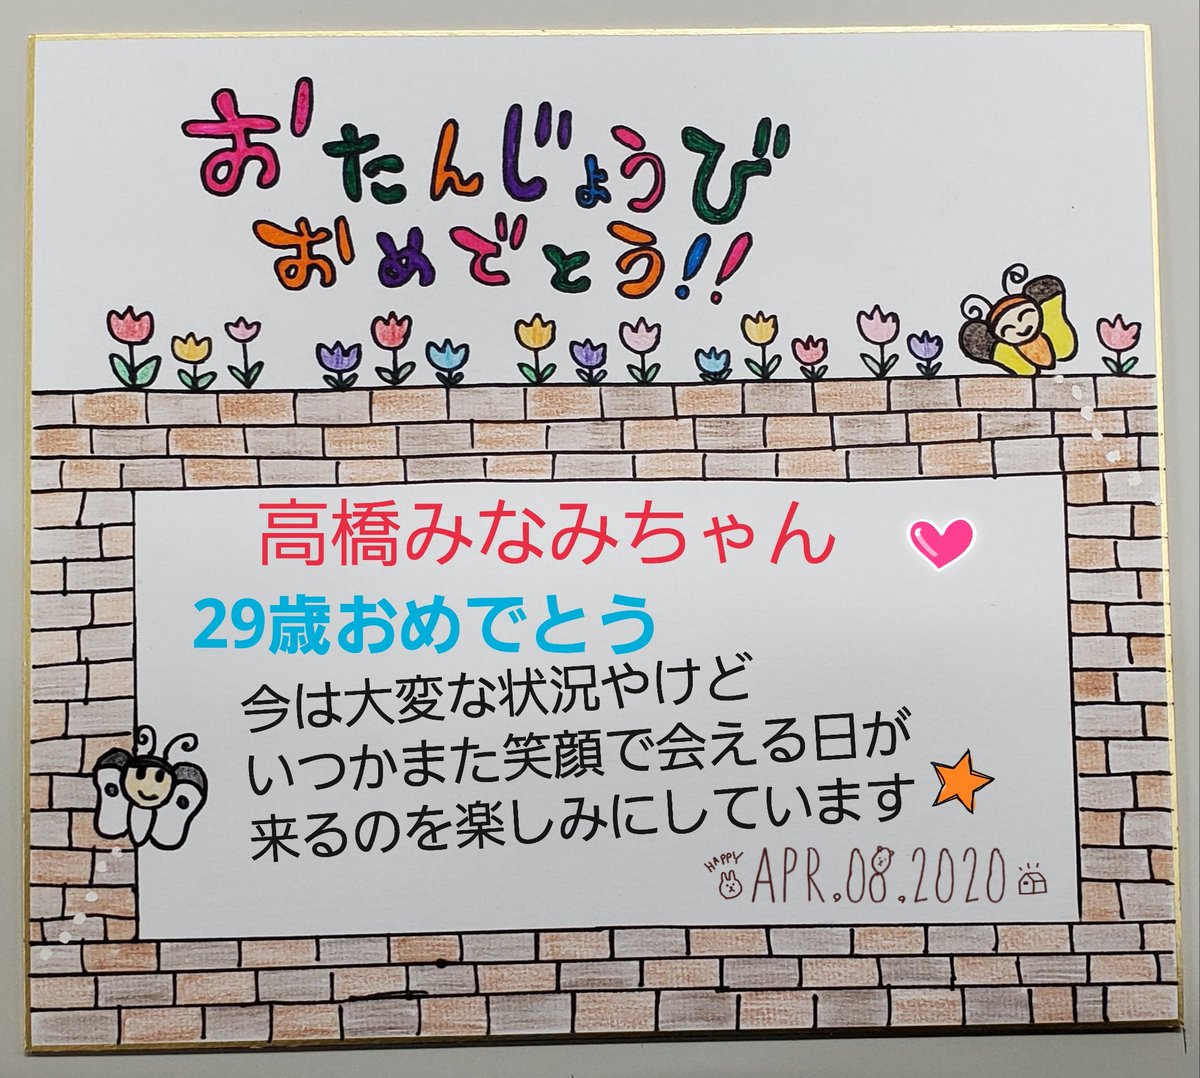 おたんじょうび
おめでとう!!
高橋みなみちゃん
29歳おめでとう
今は大変な状況やけど
いつかまた笑顔で会える日が
来るのを楽しみにしています
HAPPY
APR.08.2020